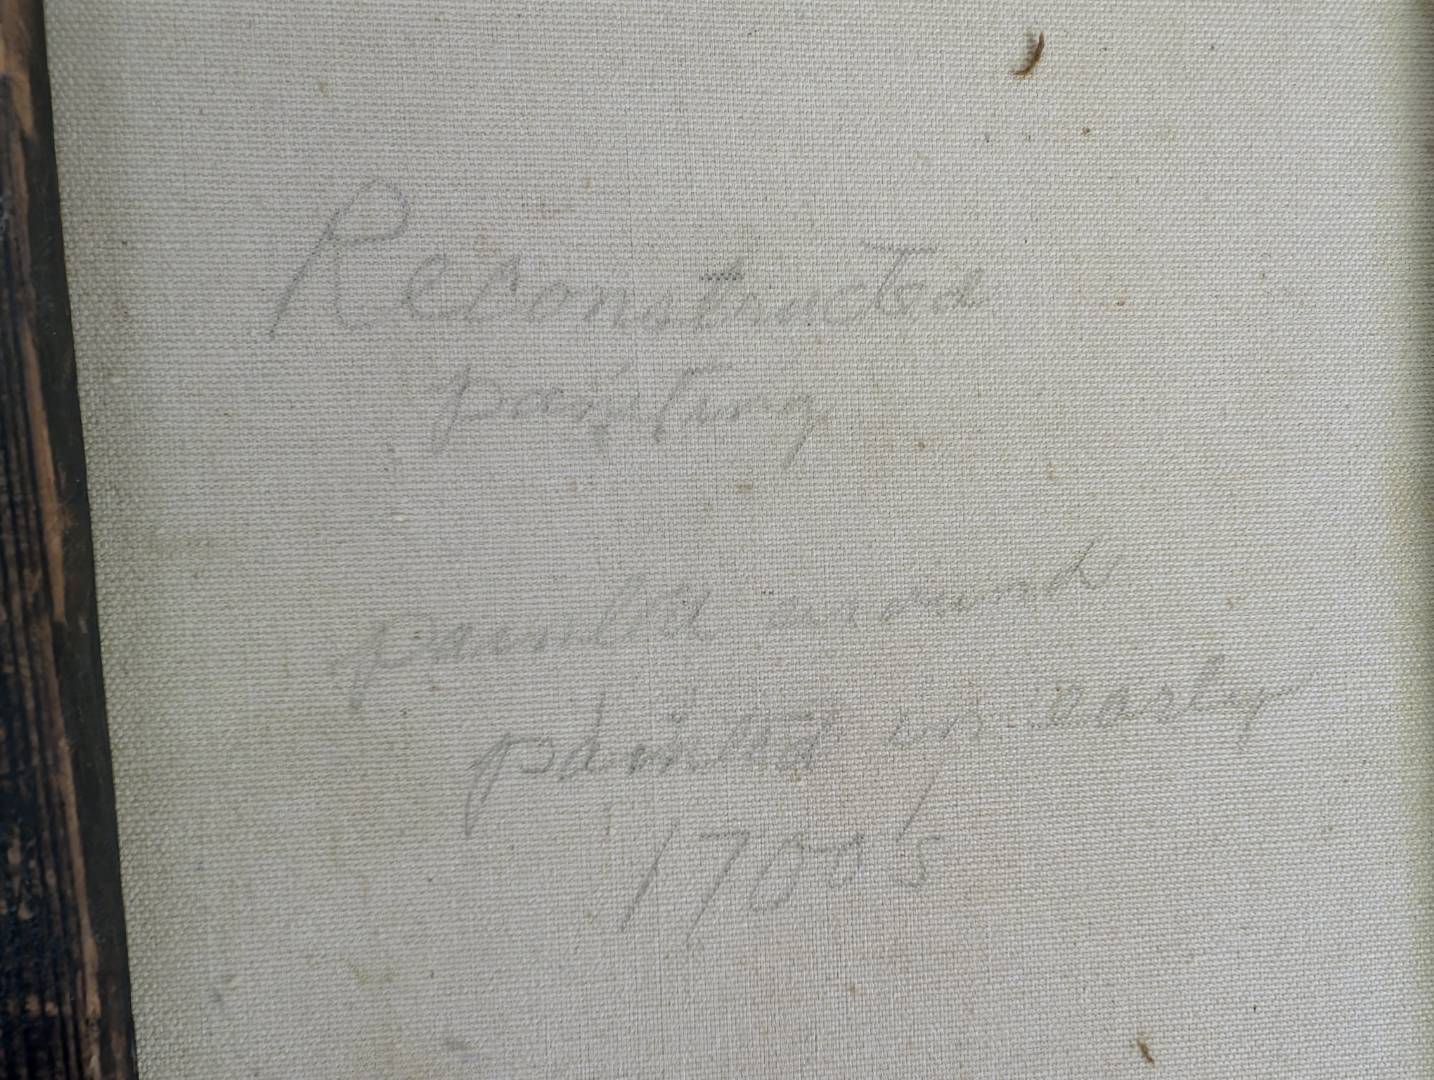 Reconstructed
painting
painted around
painted in early
1700's